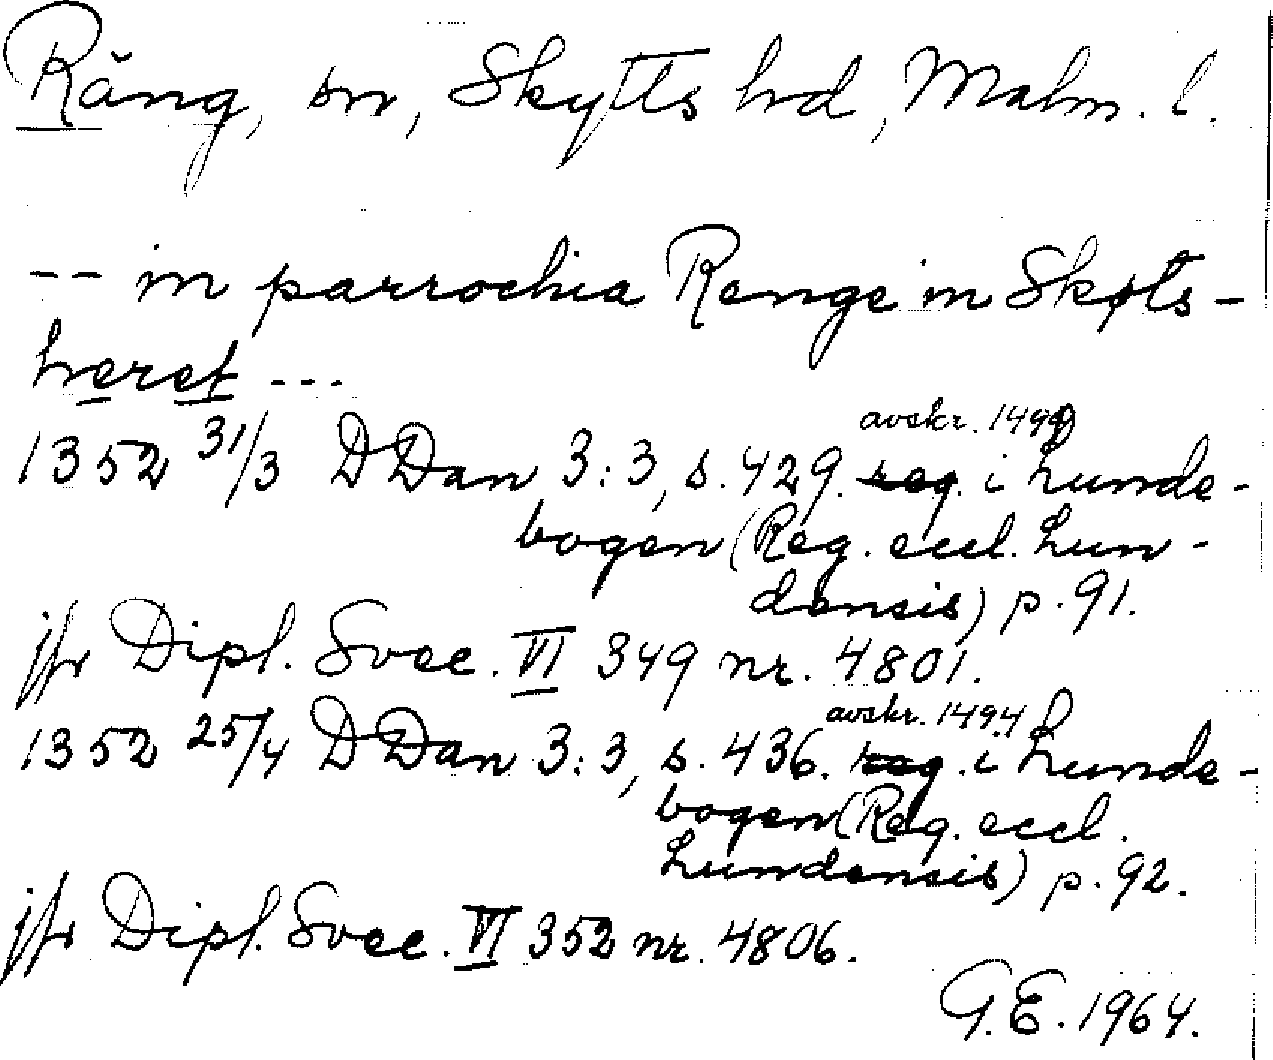 Räng, sn, Skytts hd, Malm. l.
-- in parrochia Renge in Skøts-
heret ---
1352 31/3 DDan 3:3, s. 429. avskr. 1494 reg. i Lunde-
bogen (Reg. eccl. Lun-
densis) p. 91.
jfr Dipl. Svec. VI 349 nr. 4801.
1352 25/4 DDan 3:3, s. 436. avskr. 1494 reg. i Lunde-
bogen (Reg. eccl.
Lundensis) p. 92.
jfr Dipl. Svec. VI 352 nr. 4806.
G.E. 1964.